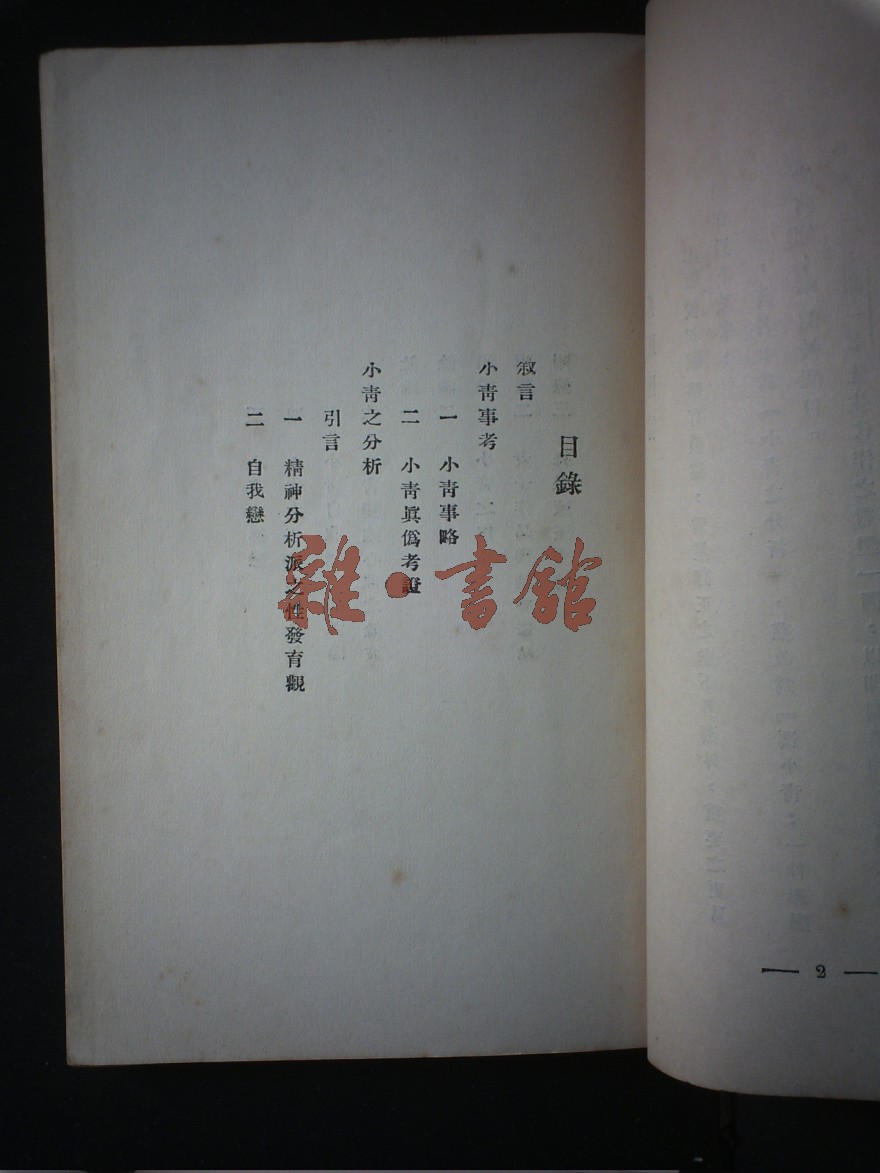 目錄
敘言
小青事考
一　小青事略
二　小青眞僞考證
小青之分析
引言
一　精神分析派之性發育觀
二　自我戀
雜·書館
— 2 —